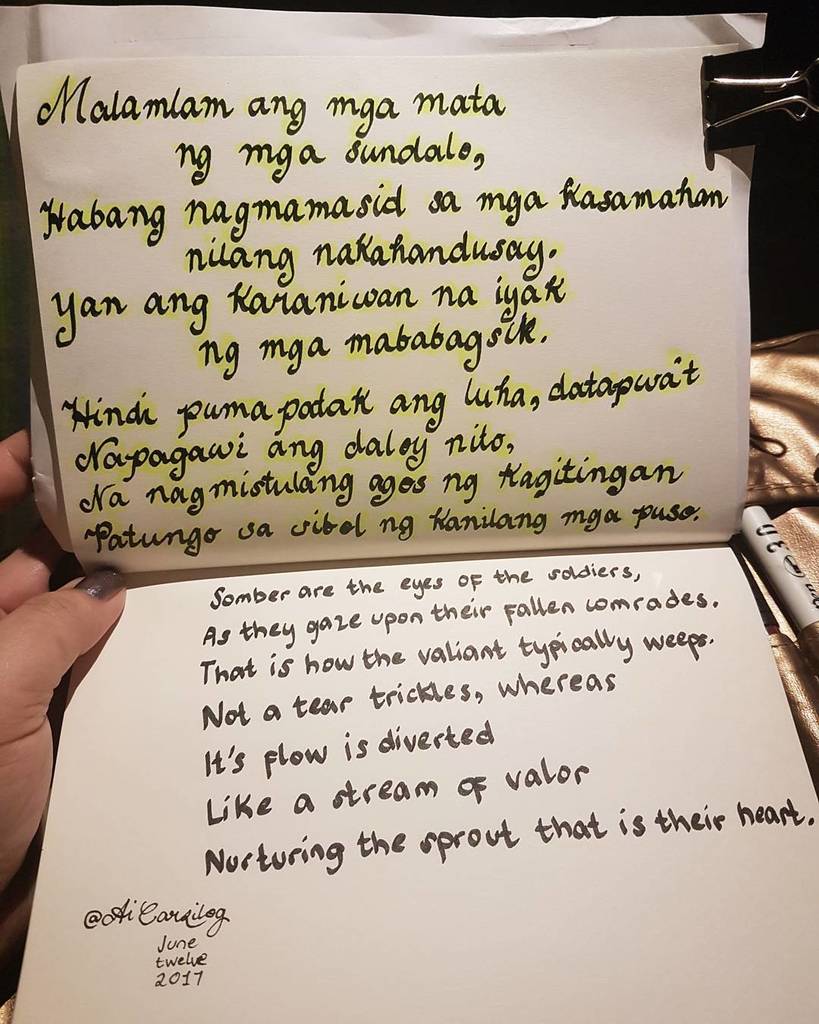 Malamlam ang mga mata
ng mga sundalo,
Habang nagmamasid sa mga kasamahan
nilang nakahandusay.
Yan ang karaniwan na iyak
ng mga mababagsik.
Hindi pumapatak ang luha, datapwa't
Napagawi ang daloy nito,
Na nagmistulang agos ng kagitingan
Patungo sa sibol ng kanilang mga puso.
Somber are the eyes of the soldiers,
As they gaze upon their fallen comrades.
That is how the valiant typically weeps.
Not a tear trickles, whereas
It's flow is diverted
Like a stream of valor
Nurturing the sprout that is their heart.
@AiCarzilog
June
twelve
2017